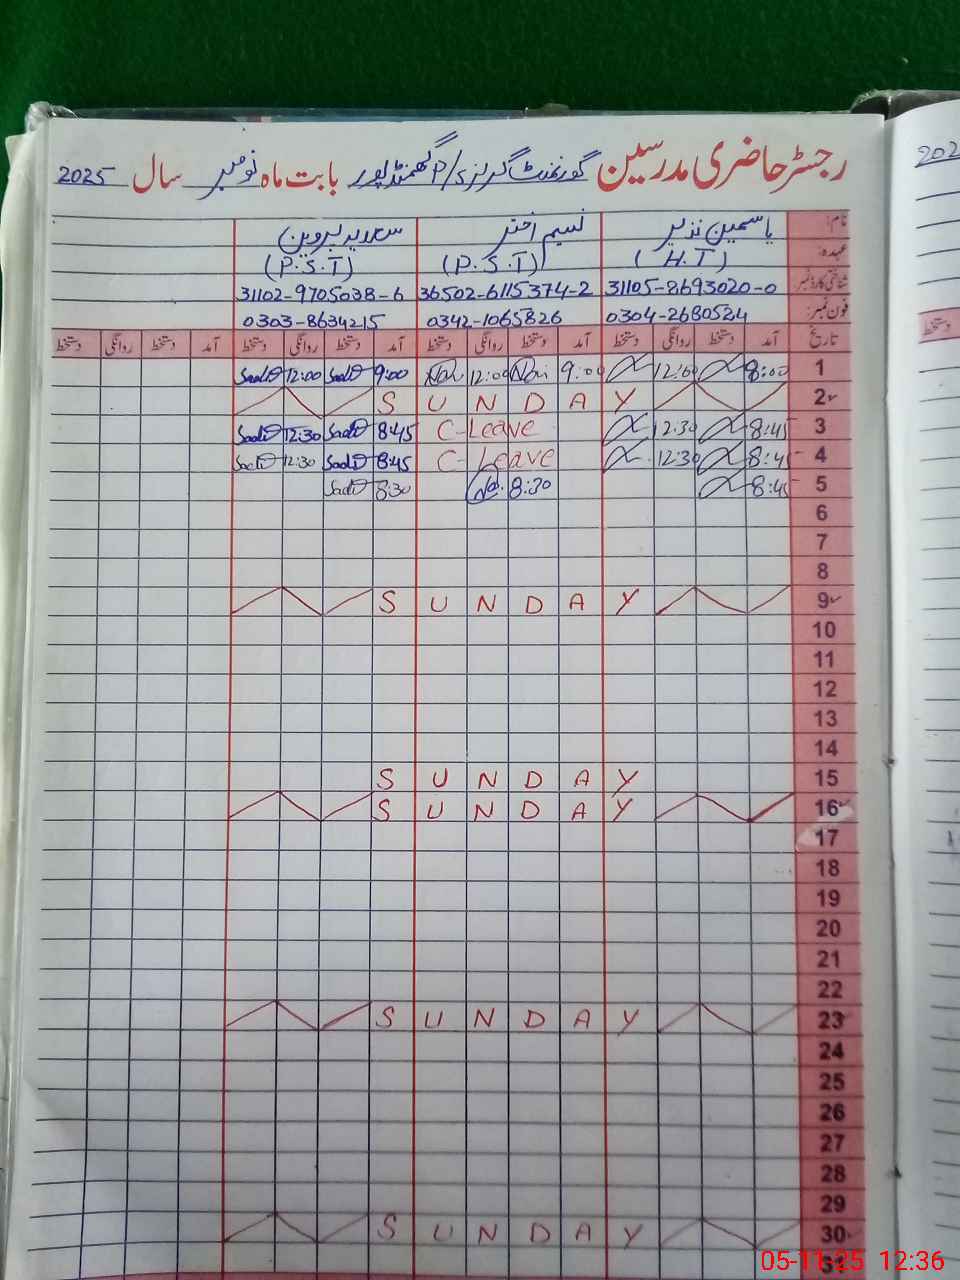 رجسٹر حاضری مدرسین گورنمنٹ گرلز P/S گھمنڈپور بابت ماہ نومبر سال 2025
نام: یاسمین نذیر نسیم اختر سعدیہ پروین
عہدہ: (H.T) (P.S.T) (P.S.T)
شناختی کارڈ نمبر 31105-8693020-0 36502-6115374-2 31102-9705038-6
فون نمبر: 0304-2680524 0342-1065826 0303-8634215
تاریخ آمد دستخط روانگی دستخط آمد دستخط روانگی دستخط آمد دستخط روانگی دستخط آمد دستخط روانگی دستخط
Sadi 12:00 Sadi 9:00 12:00 9:00 12:00 8:00 1
S U N D A Y 2
Sadi 12:30 Sadi 8:45 C-Leave 12:30 8:45 3
Sadi 12:30 Sadi 8:45 C-Leave 12:30 8:45 4
Sadi 8:30 8:30 8:45 5
6
7
8
S U N D A Y 9
10
11
12
13
14
S U N D A Y 15
S U N D A Y 16
17
18
19
20
21
22
S U N D A Y 23
24
25
26
27
28
29
S U N D A Y 30
31
202
دستخط
05-11-25 12:36